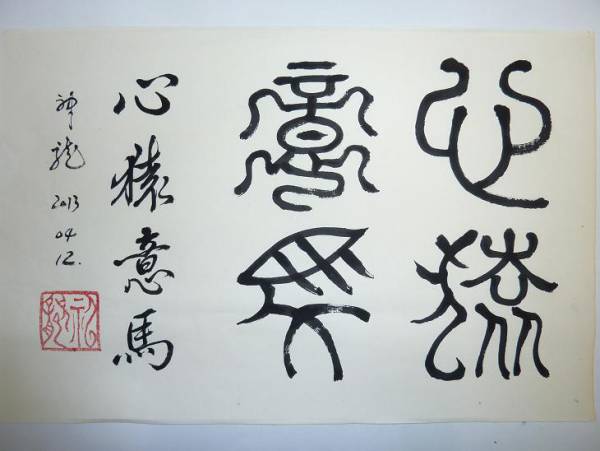 心猿
意馬
心猿意馬
禅龍 2013 04 12.